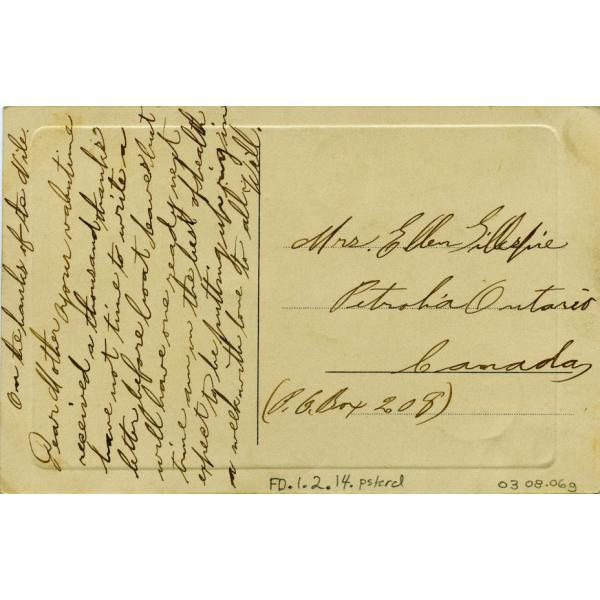 on the banks of the Nile.
Dear Mother your valentine
received a thousand thanks
have not time to write a
letter before boat leaves but
will have one ready next
time am in the best of health
expect to be putting up rig in
a week with love to all
Will.
Mrs. Ellen Gillespie
Petrolia Ontario
Canada
(P.O. Box 208)
FD.1.2.14.pstcrd
03 08.06g